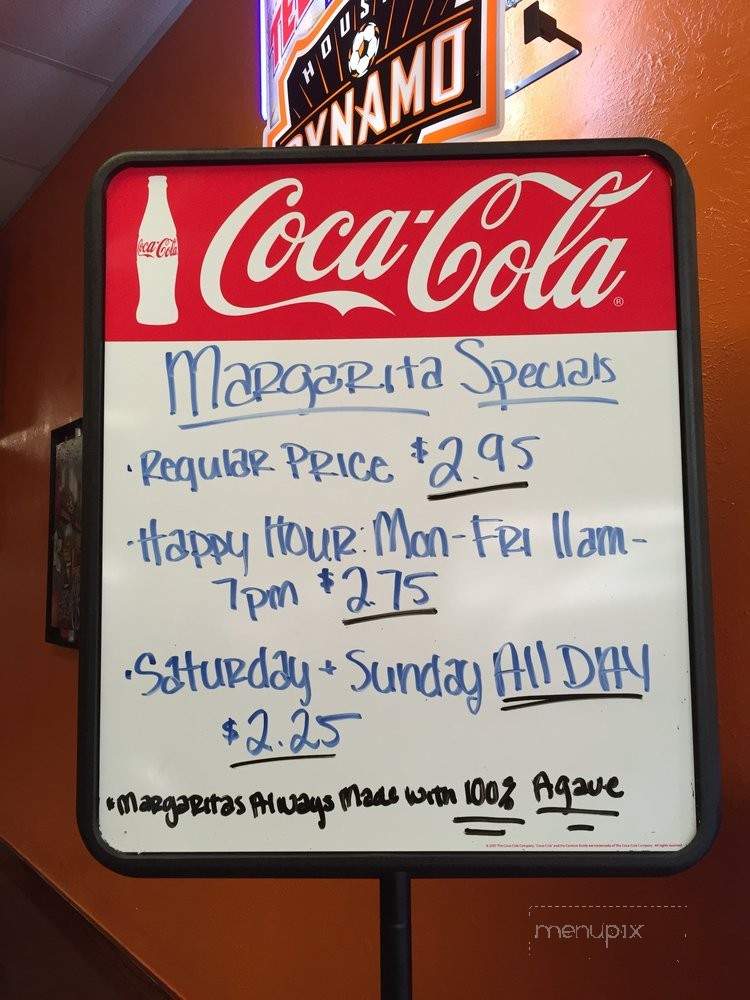 HOUS
DYNAMO
Coca-Cola
Coca-Cola®
Margarita Specials
·Regular Price $2.95
·Happy Hour: Mon-Fri 11am-
7pm $2.75
·Saturday + Sunday All DAY
$2.25
*Margaritas Always Made with 100% Agave
menupix